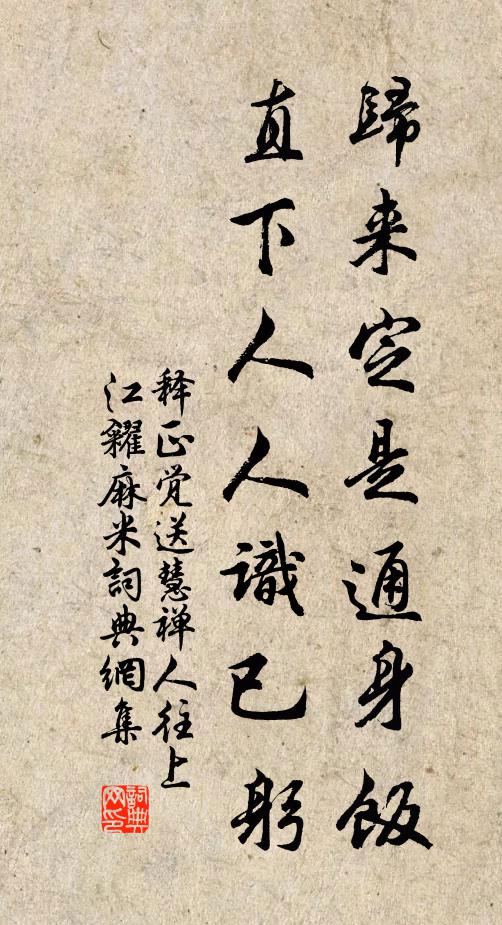 歸来定是通身飯
直下人人識已躬
释正觉送慧禅人往上
江糴麻米詞典網集
詞典网印